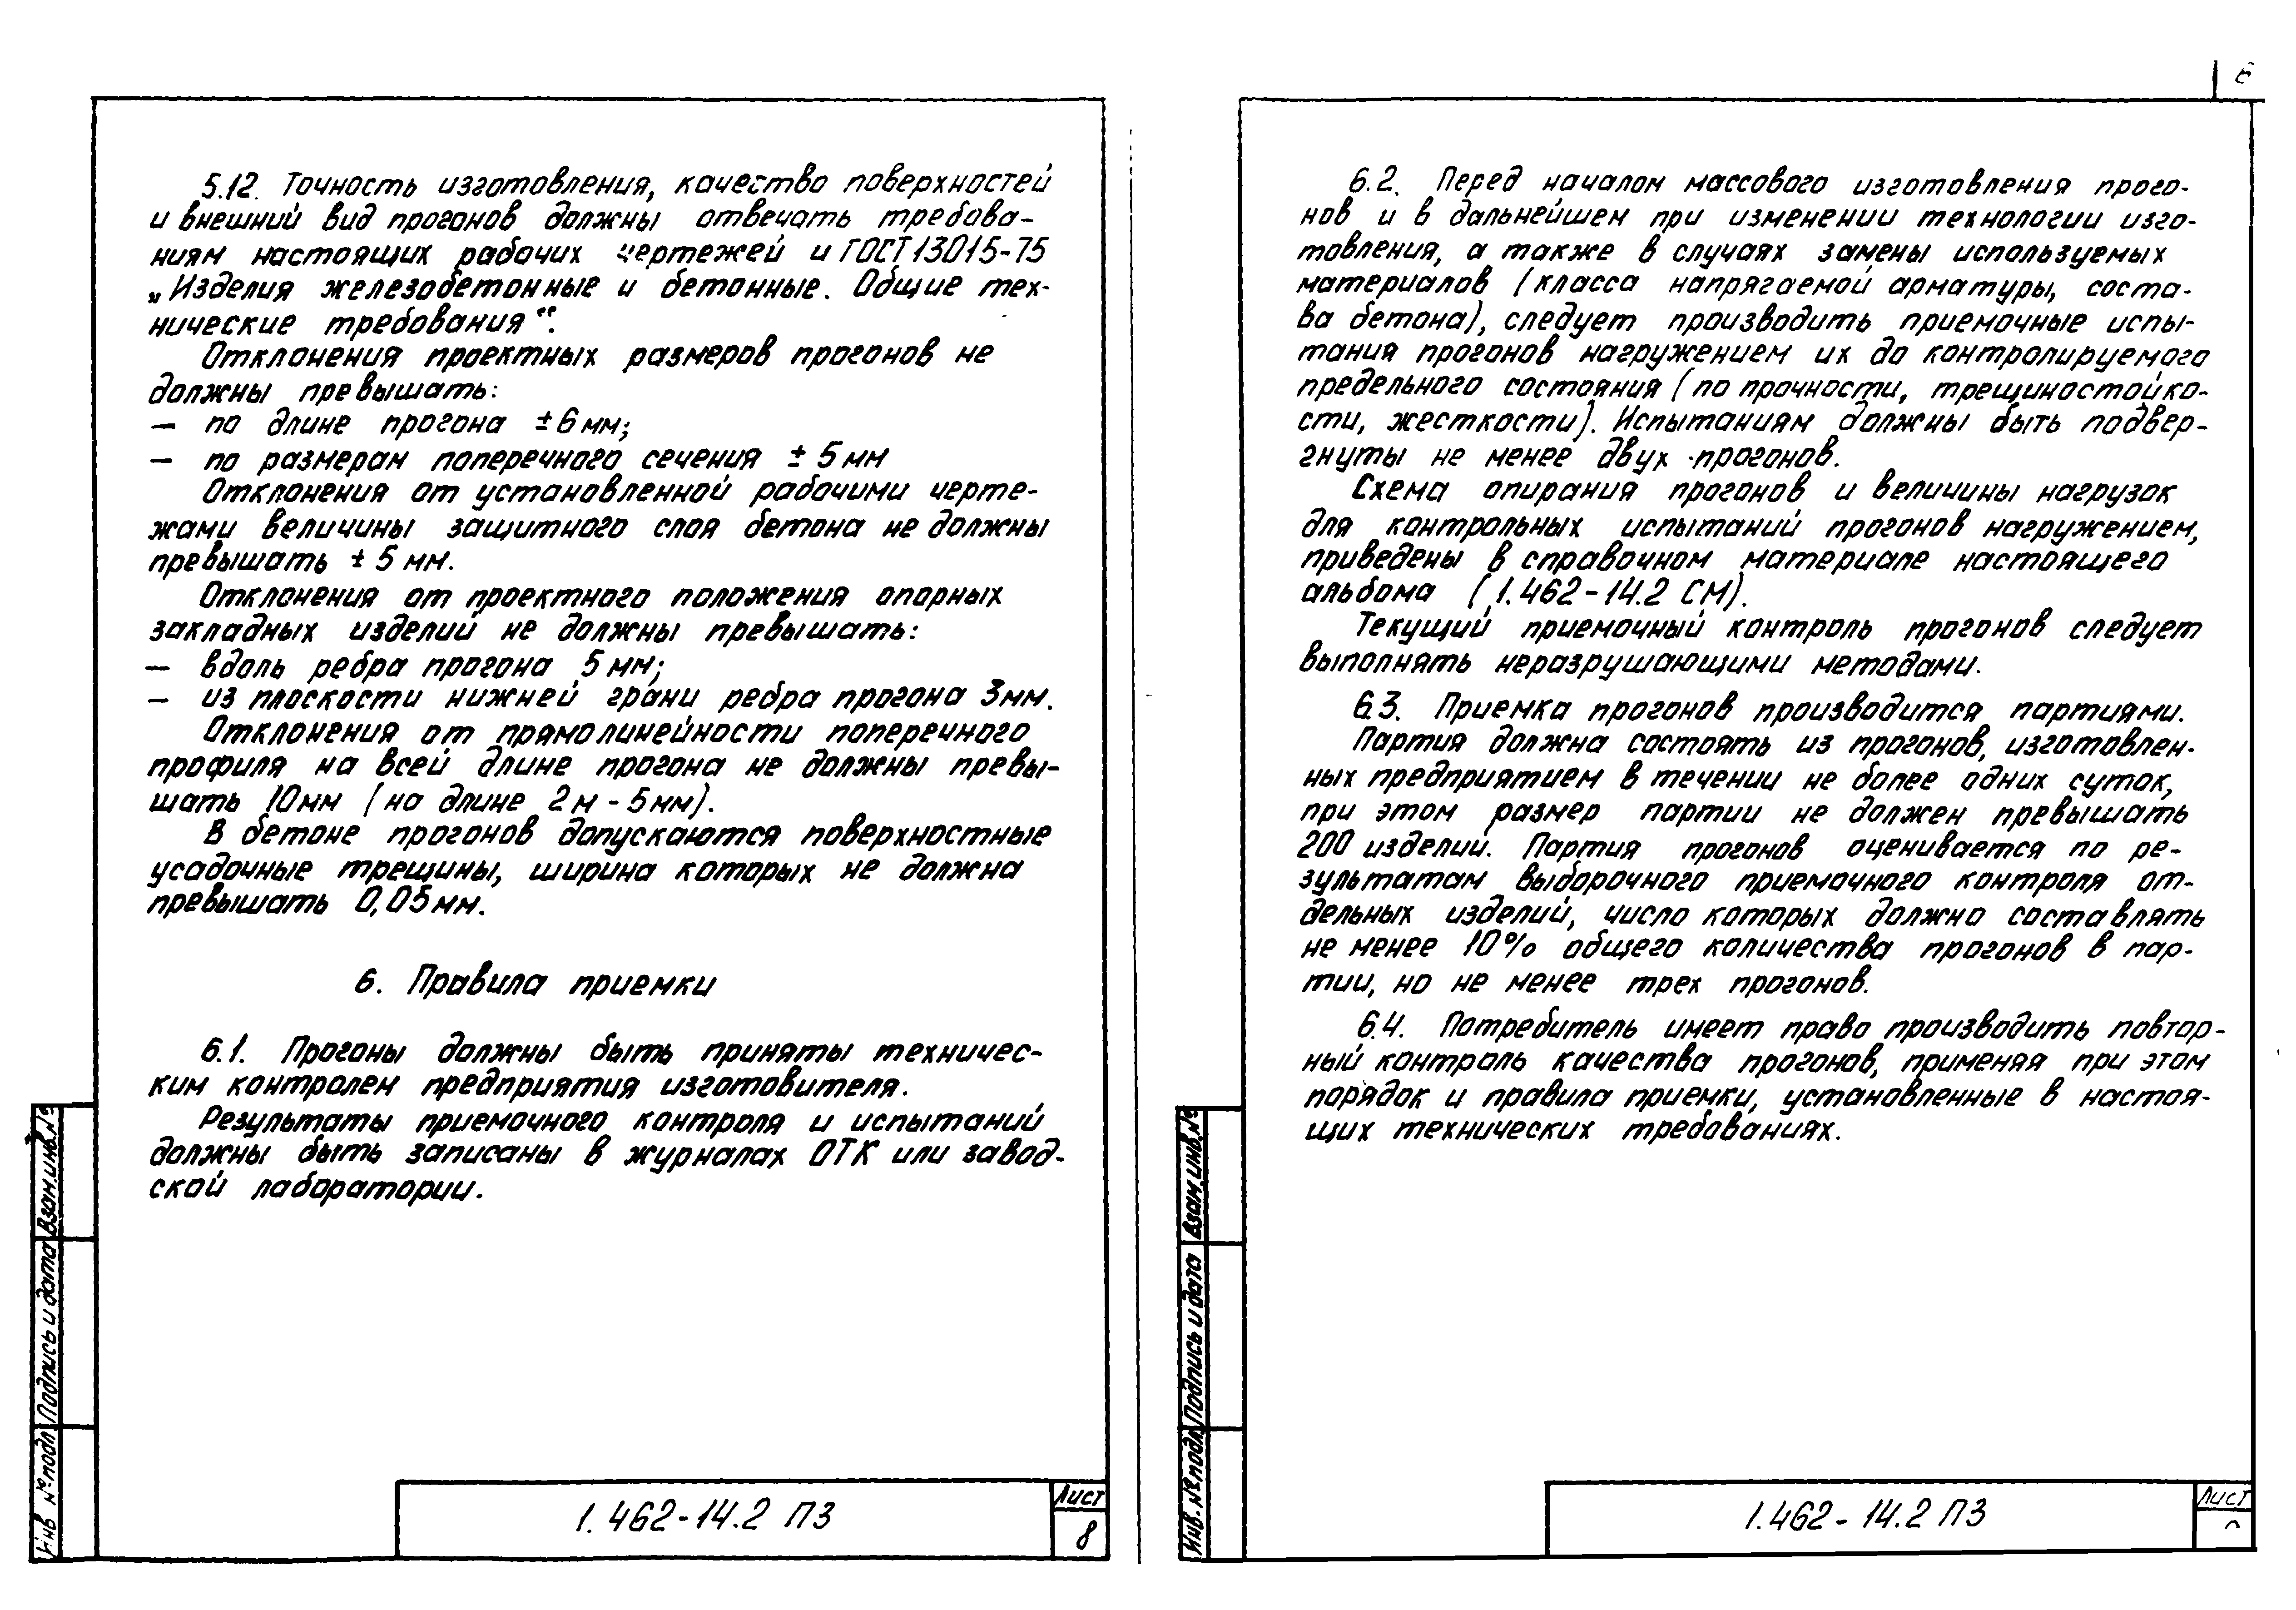 5.12. Точность изготовления, качество поверхностей
и внешний вид прогонов должны отвечать требова-
ниям настоящих рабочих чертежей и ГОСТ 13015-75
„Изделия железобетонные и бетонные. Общие тех-
нические требования“.
Отклонения проектных размеров прогонов не
должны превышать:
— по длине прогона ±6 мм;
— по размерам поперечного сечения ± 5 мм
Отклонения от установленной рабочими черте-
жами величины защитного слоя бетона не должны
превышать ± 5 мм.
Отклонения от проектного положения опорных
закладных изделий не должны превышать:
— вдоль ребра прогона 5 мм;
— из плоскости нижней грани ребра прогона 3мм.
Отклонения от прямолинейности поперечного
профиля на всей длине прогона не должны превы-
шать 10мм (на длине 2м - 5мм).
В бетоне прогонов допускаются поверхностные
усадочные трещины, ширина которых не должна
превышать 0,05мм.
6. Правила приемки
6.1. Прогоны должны быть приняты техничес-
ким контролем предприятия изготовителя.
Результаты приемочного контроля и испытаний
должны быть записаны в журналах ОТК или завод-
ской лаборатории.
Взам.инв.№
Подпись и дата
Инв. №подл
1.462-14.2 ПЗ
Лист
8
6.2. Перед началом массового изготовления прого-
нов и в дальнейшем при изменении технологии изго-
товления, а также в случаях замены используемых
материалов (класса напрягаемой арматуры, соста-
ва бетона), следует производить приемочные испы-
тания прогонов нагружением их до контролируемого
предельного состояния (по прочности, трещиностойко-
сти, жесткости). Испытаниям должны быть подвер-
гнуты не менее двух прогонов.
Схема опирания прогонов и величины нагрузок
для контрольных испытаний прогонов нагружением,
приведены в справочном материале настоящего
альбома (1.462-14.2 СМ).
Текущий приемочный контроль прогонов следует
выполнять неразрушающими методами.
6.3. Приемка прогонов производится партиями.
Партия должна состоять из прогонов, изготовлен-
ных предприятием в течении не более одних суток,
при этом размер партии не должен превышать
200 изделий. Партия прогонов оценивается по ре-
зультатам выборочного приемочного контроля от-
дельных изделий, число которых должно составлять
не менее 10% общего количества прогонов в пар-
тии, но не менее трех прогонов.
6.4. Потребитель имеет право производить повтор-
ный контроль качества прогонов, применяя при этом
порядок и правила приемки, установленные в настоя-
щих технических требованиях.
Взам.инв.№
Подпись и дата
Инв. №подл
1.462-14.2 ПЗ
Лист